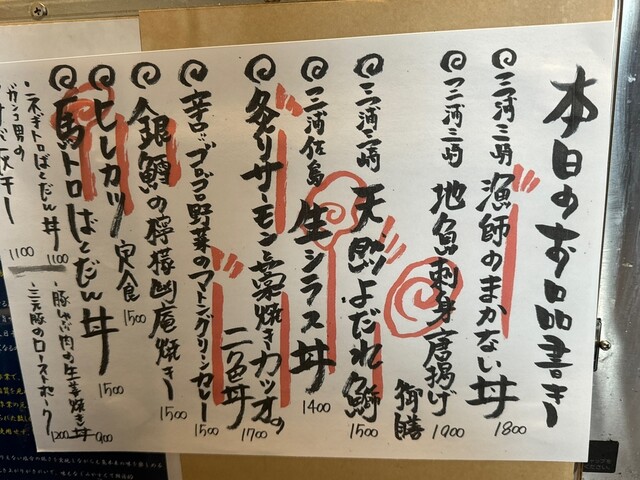 本日のお品書き
三河三崎 漁師のまかない丼 1800
三河三崎 地魚刺身唐揚げ御膳 1900
三河三崎 天然よだれ鰤 1500
三河佐島 生シラス丼 1400
炙りサーモンと藁焼きカツオの二色丼 1700
辛口ゴロゴロ野菜のマトングリーンカレー 1500
銀鱈の檸檬幽庵焼き 1500
ヒレカツ定食 1500
馬トロばくだん丼 1500
・豚しゃぶ肉の生姜焼き丼 900
・三元豚のローストポーク 1200
・ネギトロばくだん丼 1100
1100